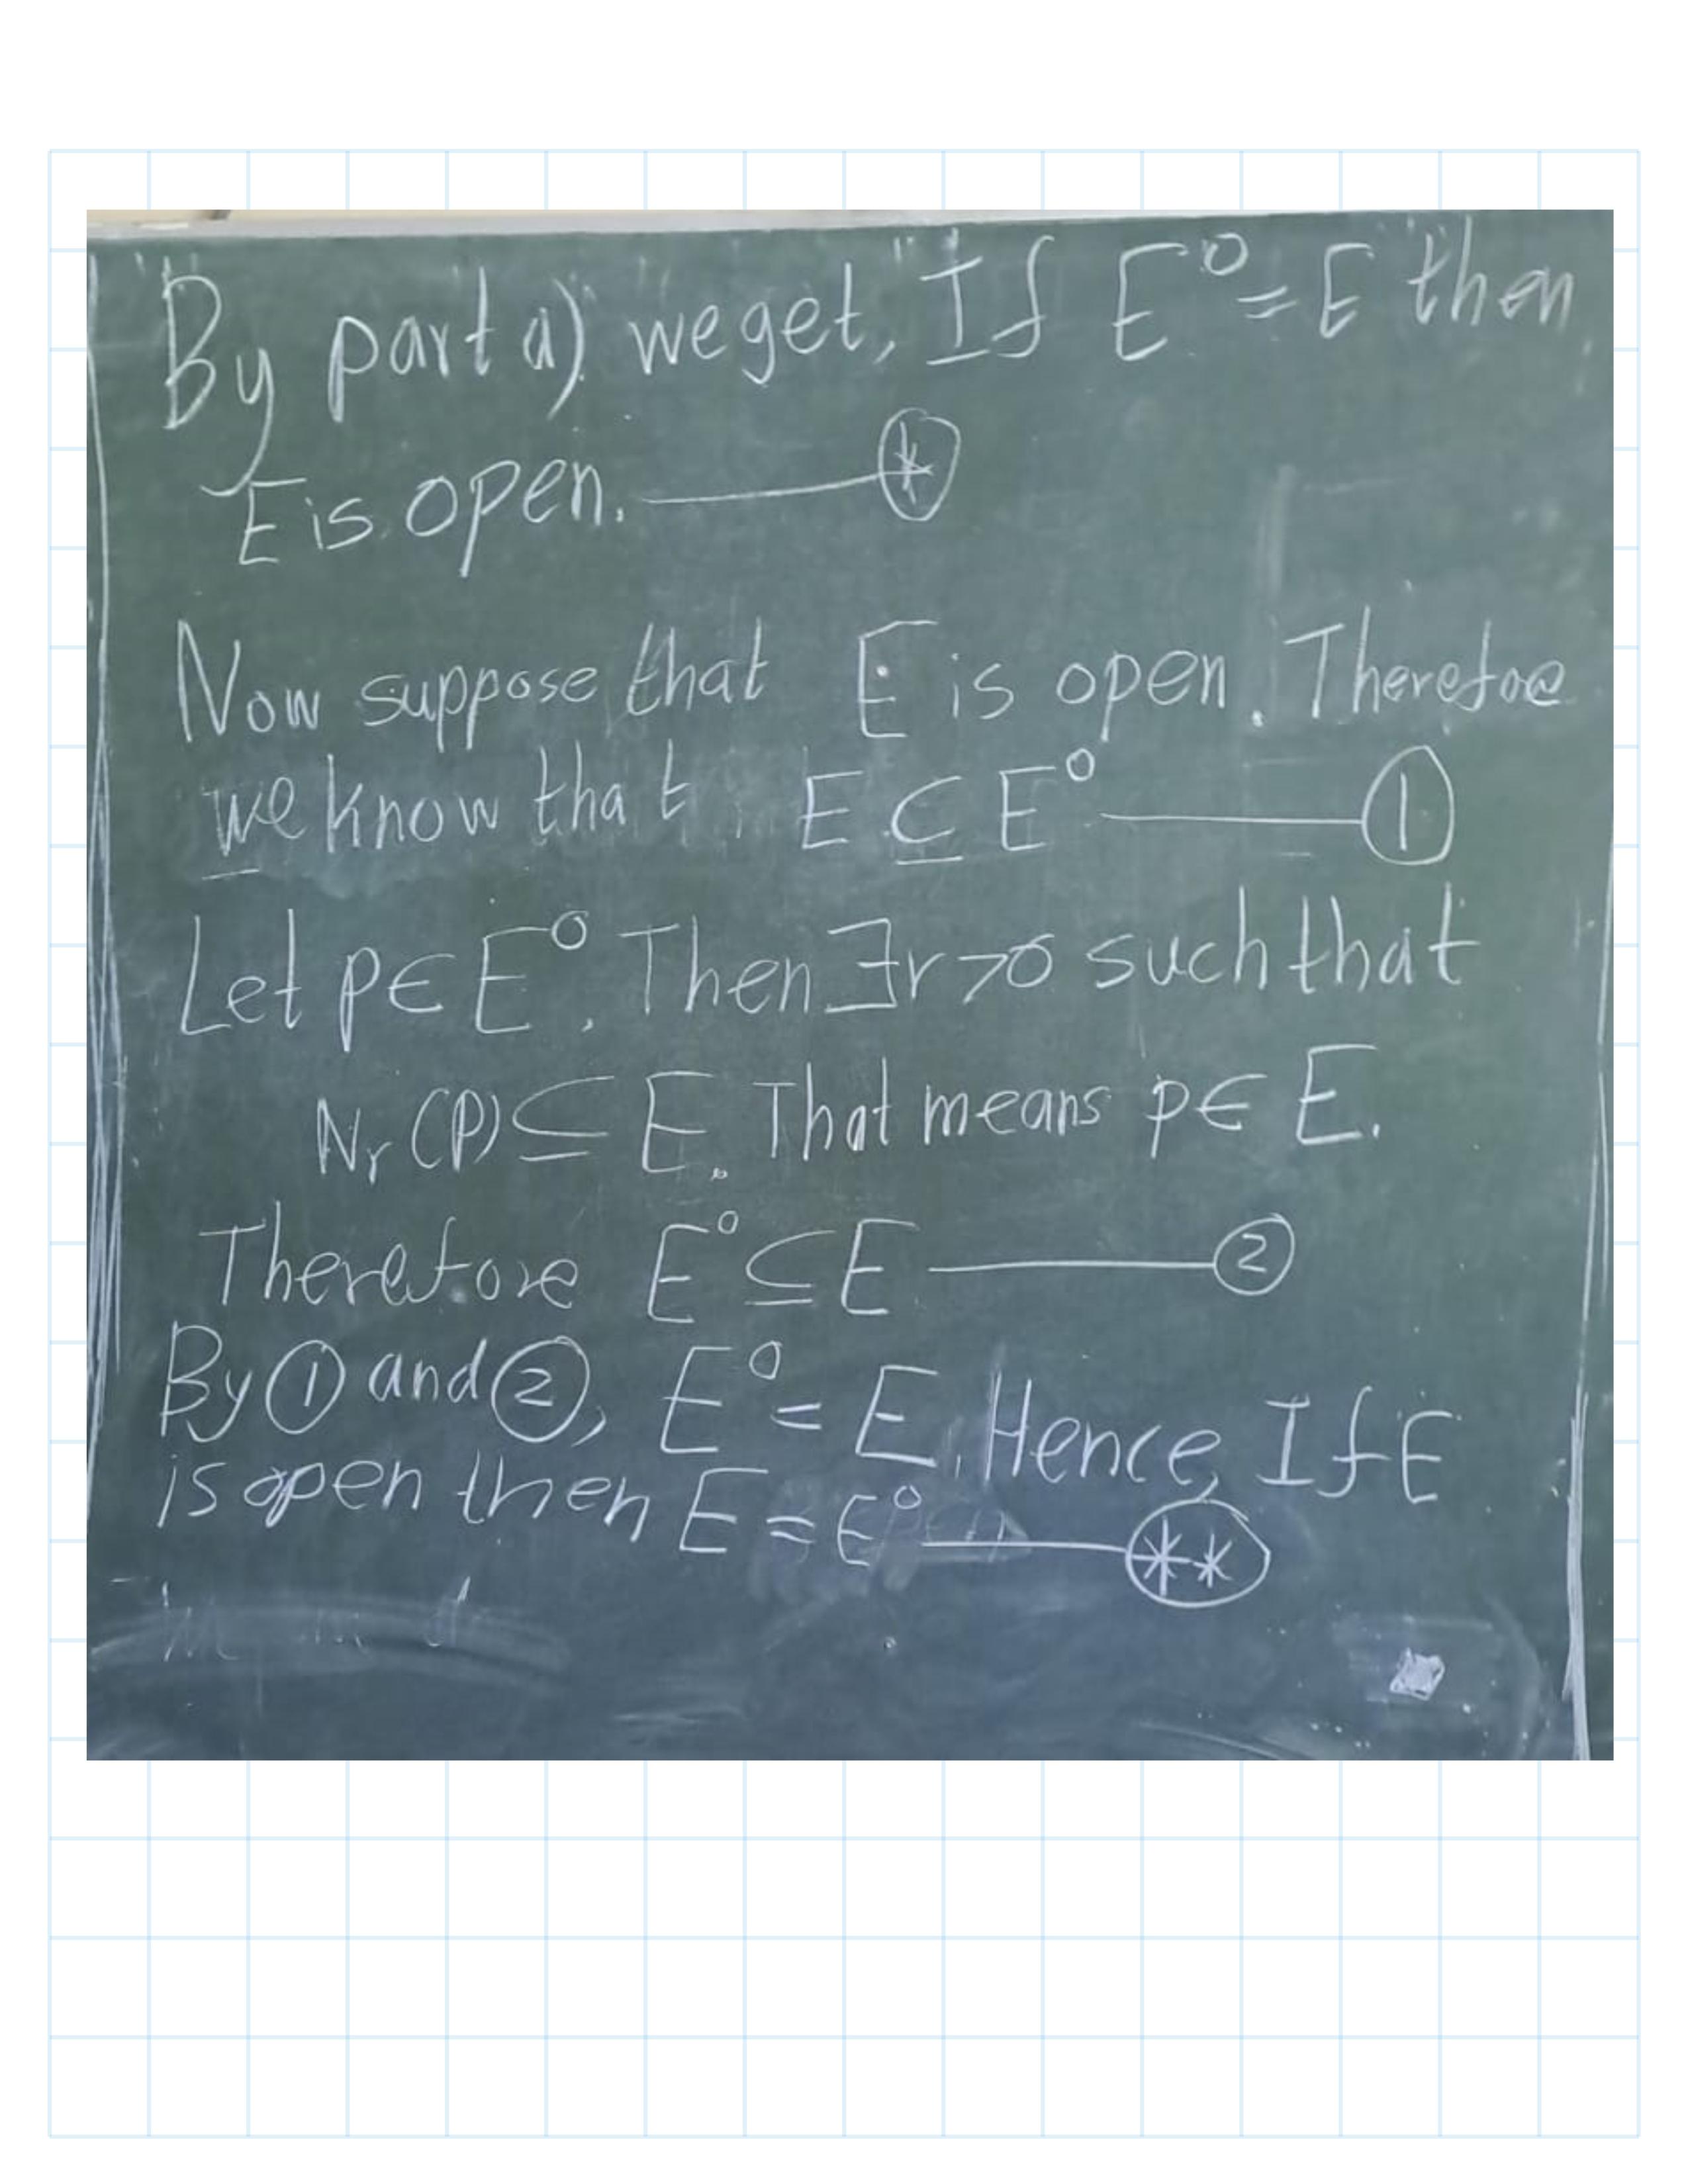 By part a) we get, If E° = E then
E is open. —— (*)
Now suppose that E is open. Therefore
we know that E ⊆ E° —— ①
Let p ∈ E°. Then ∃r>0 such that
Nr (P) ⊆ E. That means p ∈ E.
Therefore E° ⊆ E —— ②
By ① and ②, E° = E. Hence, If E
is open then E = E° —— (**)